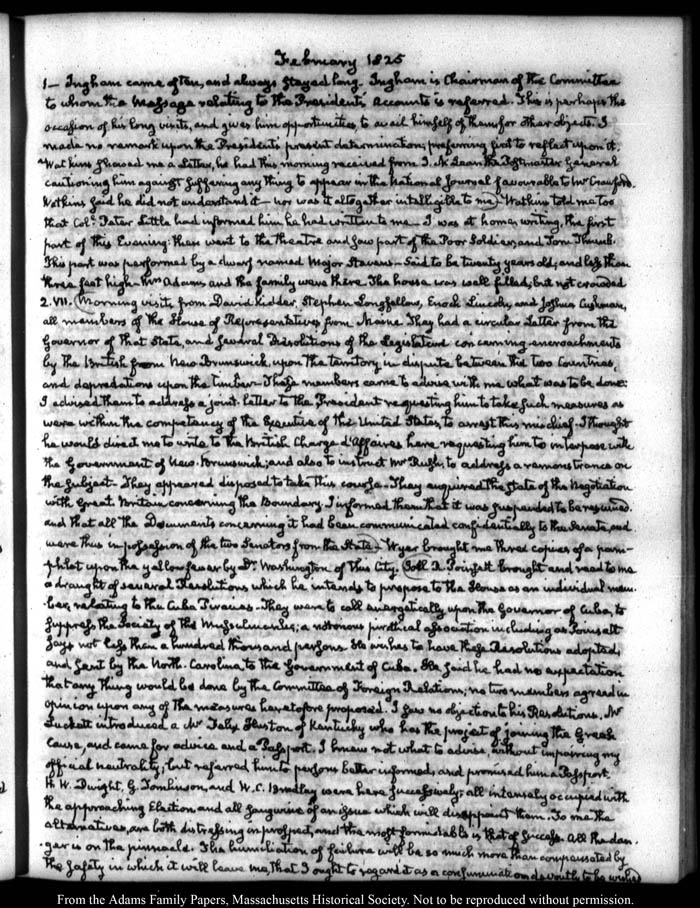 February 1825
1— Ingham came often, and always stayed long. Ingham is Chairman of the Committee
to whom the Message relating to the President's accounts is referred. This is perhaps the
occasion of his long visits, and gives him opportunities, to avail himself of them for other objects. I
made no remark upon the President's present determination; preferring first to reflect upon it.
Watkins shewed me a Letter, he had this morning received from J. McLean the Postmaster General
cautioning him against suffering any thing to appear in the National Journal favourable to Mr Crawford.
Watkins said he did not understand it— nor was it altogether intelligible to me. Watkins told me too
that Coll. Peter Little had informed him he had written to me— I was at home, writing, the first
part of this Evening: then went to the theatre and saw part of the Poor Soldier, and Tom Thumb.
This part was performed by a dwarf named Major Stevens— Said to be twenty years old; and less than
three feet high— Mrs Adams and the family were there. The house was well filled, but not crowded
2. VII. Morning visits from David Kidder, Stephen Longfellow, Enoch Lincoln, and Joshua Cushman,
all members of the House of Representatives from Maine. They had a circular Letter from the
Governor of that State, and several Resolutions of the Legislature concerning encroachments
by the British from New Brunswick, upon the territory in dispute between the two Countries,
and depredations upon the timber— These members came to advise with me what was to be done:
I advised them to address a joint letter to the President requesting him to take such measures as
were within the competency of the Executive of the United States, to arrest this mischief. I thought
he would direct me to write to the British Chargé d'Affaires here, requesting him to interpose with
the Government of New-Brunswick; and also to instruct Mr Rush, to address a remonstrance on
the subject— They appeared disposed to take this course. They enquired the state of the Negotiation
with Great Britain concerning the Boundary. I informed them that it was suspended to be resumed.
and that all the Documents concerning it had been communicated confidentially to the Senate, and
were thus in possession of the two Senators from the State— Wyer brought me three copies of a pam-
phlet upon the yellow fever by Dr. Washington of this City. Joel R. Poinsett brought and read to me
a draught of several Resolutions which he intends to propose to the House as an individual mem-
ber, relating to the Cuba Pirates— They were to call energetically upon the Governor of Cuba, to
suppress the Society of the Musselmenes; a notorious piratical association including as Poinsett
says not less than a hundred thousand persons. He wishes to have these Resolutions adopted,
and sent by the North-Carolina, to the Government of Cuba. He said he had no expectation
that any thing would be done by the Committee of Foreign Relations; no two members agreed in
opinion upon any of the measures heretofore proposed. I saw no objection to his Resolutions. Mr
Tuckett introduced a Mr Felix Huston of Kentucky who has the project of joining the Greek
Cause, and came for advice and a Passport. I knew not what to advise, without impairing my
official neutrality; but referred him to persons better informed, and promised him a Passport.
H. W. Dwight, G. Tomlinson, and W. C. Bradley were here successively; all intensely occupied with
the approaching Election and all sanguine of an issue which will disappoint them. To me the
alternatives, are both distressing in prospect, and the most formidable is that of success. All the dan-
ger is on the pinnacle. The humiliation of failure will be so much more than compensated by
the safety in which it will leave me, that I ought to regard it as a consummation devoutly to be wished
From the Adams Family Papers, Massachusetts Historical Society. Not to be reproduced without permission.